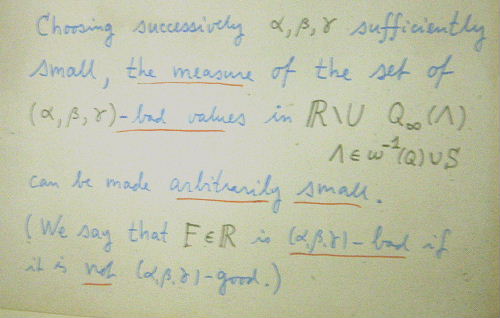 Choosing successively α, β, γ sufficiently
small, the measure of the set of
(α, β, γ)-bad values in ℝ\∪ Q∞(Λ)
Λ∈ω⁻¹(Q)∪S
can be made arbitrarily small.
(We say that F∈ℝ is (α,β,γ)-bad if
it is not (α,β,γ)-good.)